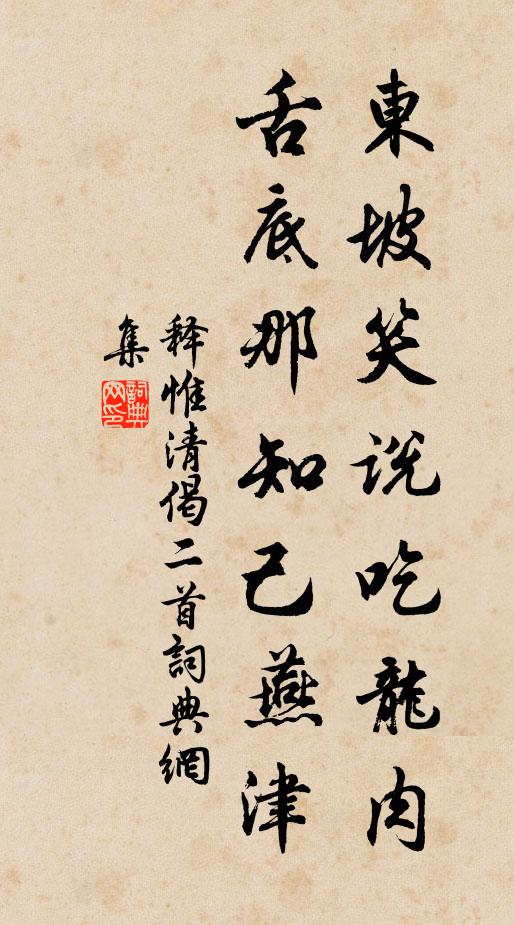 東坡笑说吃龍肉
舌底那知已燕津
释惟清偈二首詞典網
集
詞典
网印